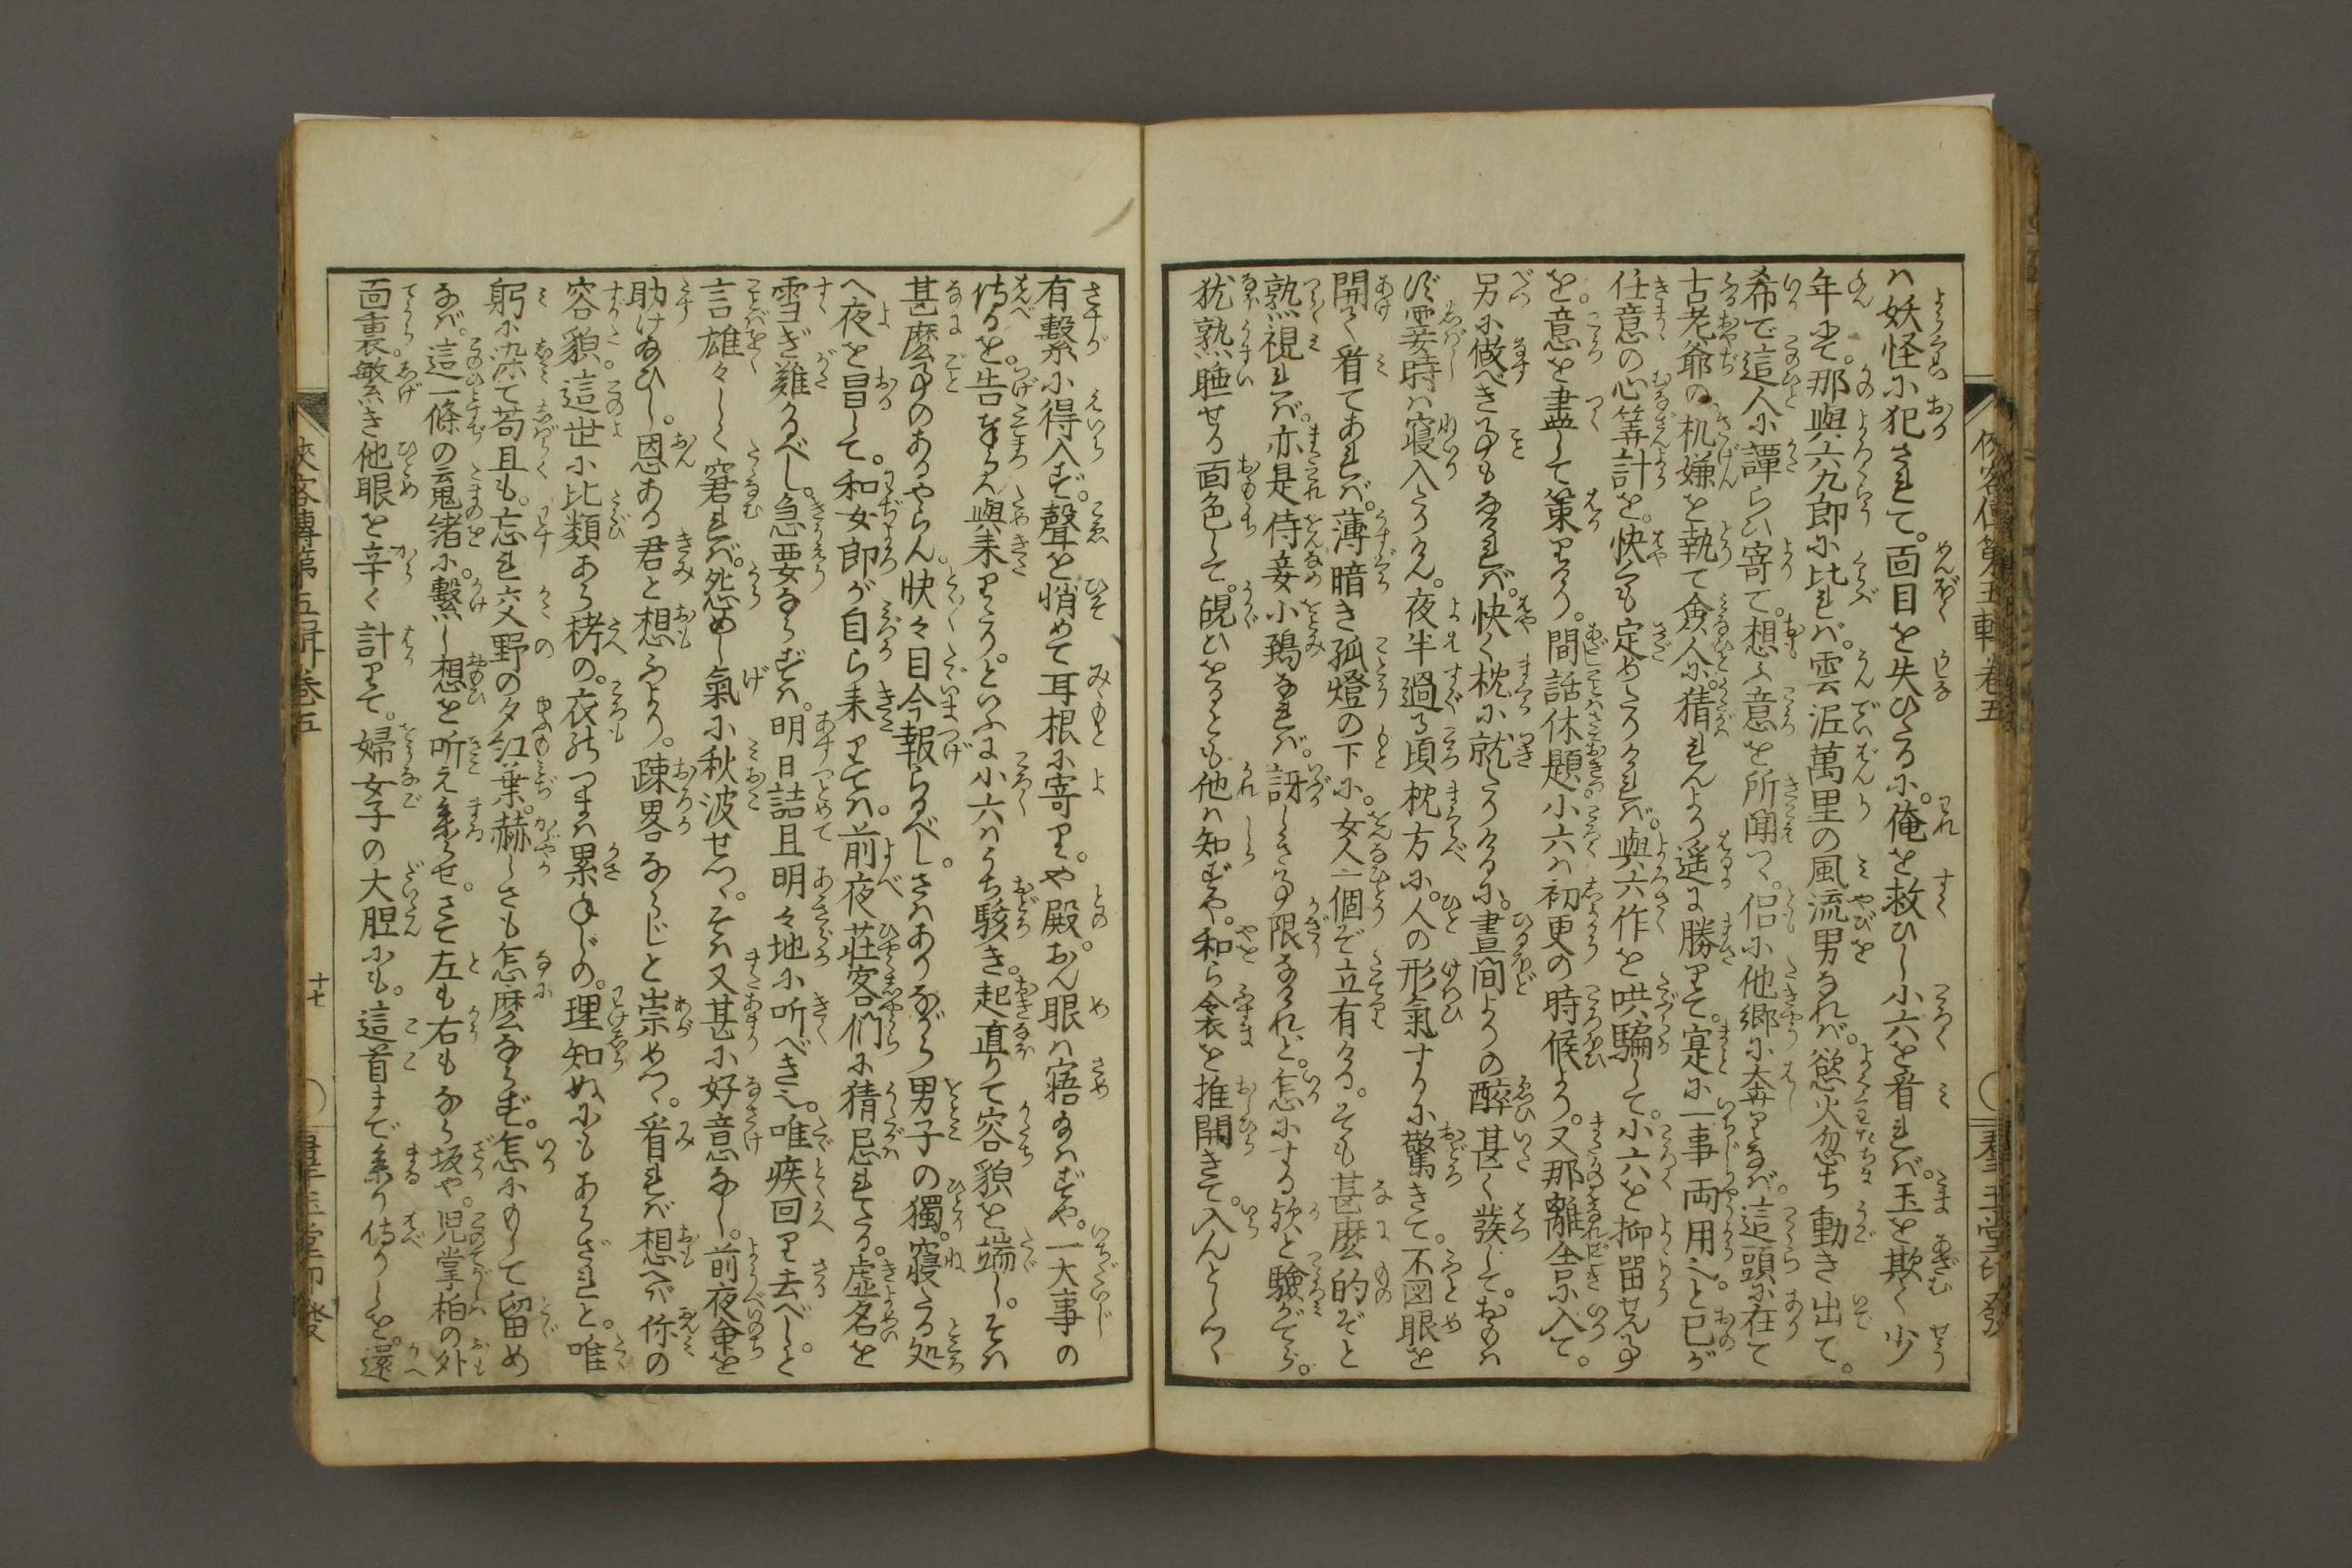 ハ妖怪に犯されて。面目を失ひたるに。俺を救ひし小六を看れば。玉を欺く少
年にて。那與六九郎に比れば。雲泥萬里の風流男なれば。慾火忽ち動き出て。
希で這人に譚らひ寄て。想ふ意を所聞つゝ。侶に他郷に奔りなば。這頭に在て
古老爺の。机嫌を執て僉人に。猜れんより遥に勝りて。寔に一事両用也と已が
任意の心筭計を。快くも定めたりければ。與六作を哄騙して。小六を抑留せん事
を。意を盡して策りける。間話休題小六ハ初更の時候より。又那離舎に入て。
另に做べき事もなければ。快く枕に就たりけるに。晝間よりの醉甚く發して。おもハ
ず霎時ハ寝入たりけん。夜半過る頃枕方に。人の形氣するに驚きて。不図眼を
開て看てあれば。薄暗き孤燈の下に。女人一個ぞ立有ける。そも甚麽的ぞと
熟視れば。亦是侍妾小鵐なれば。訝しき事限なけれど。怎にする欤と驗がてら。
犹熟睡せる面色して。覘ひをるとも他ハ知ずや。和ら衾を推開きて。入んとしつゝ
有繋に得入ず。聲を悄めて耳根に寄り。や殿。おん眼ハ寤給ハずや。一大事の
侍るを。告まゐらせんと來りたり。といふに小六ハうち駭き。起直りて容貌を端し。そハ
甚麽事のあるやらん。快々目今報らるべし。さハありながら男子の獨。寝たる処
へ夜を冒して。和女郎が自ら来りてハ。前夜荘客們に猜忌れたる。虚名を
雪ぎ難かるべし。急要ならずハ。明日詰旦明々地に听べき也。唯疾回り去べしと
言雄々しく窘れば。怨めし氣に秋波せつゝ。そハ又甚に好意なし。前夜命を
助け給ひし。恩ある君と想ふより。踈畧ならじと崇めつゝ。看れば想へば你の
容貌。這世に比類あら栲の。衣のつまハ累ねじの。理知ぬにもあらざれど。唯
躬に染て苟且も。忘れ六父野の夕紅葉。赫しさも怎麽ならず。怎にもして留め
なば。這一條の玉緒に。繋し想を听え参らせ。さて左も右もなら坂や。児掌柏の外
面裏繁き他眼を辛く計りて。婦女子の大胆にも。這首まで参り侍りしを。還
俠客傳第五輯巻五
十七
群玉堂印發